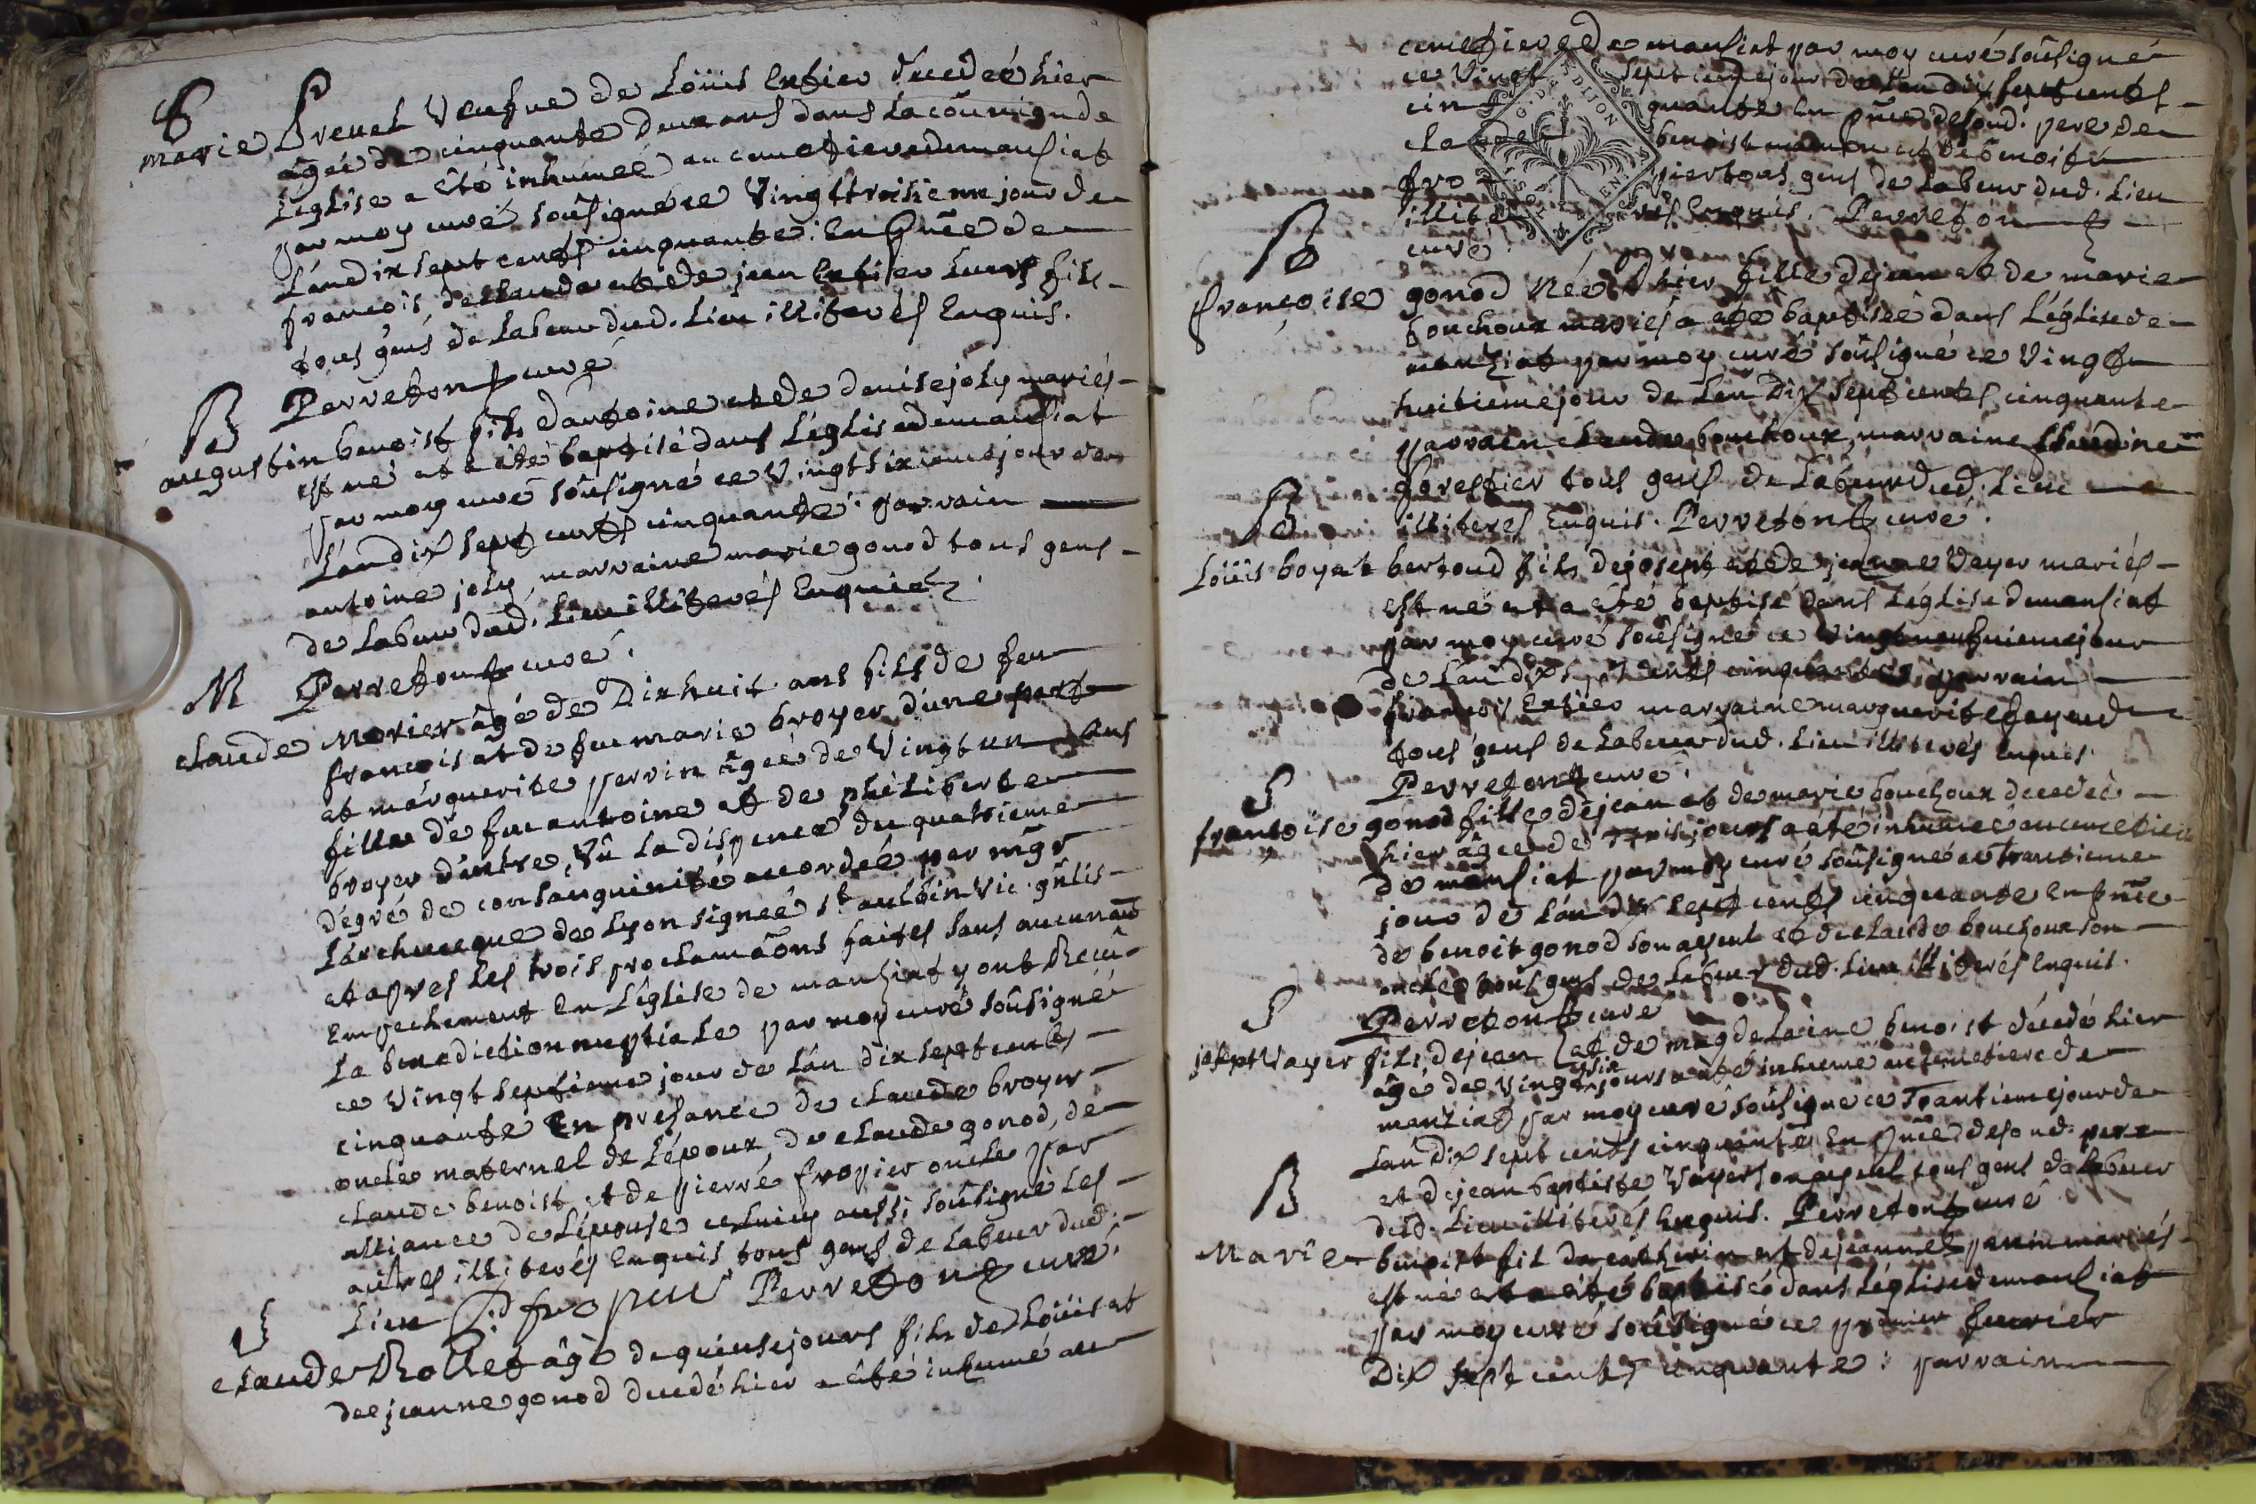 S
marie Prevel Veufve de Loüis Enfier decedeé hier
âgeé de cinquante deux ans dans la coûmignde
L'églïse a êté inhumeé au cemetiere de mansiat
par moy curé soûsigné ce Vingt troisieme jour de
L'an dix sept cents cinquante : En pñce de
francois, de claude et de jean Enfier Leurs fils
tous gens de Labeur dud. Lieu illiterés Enquis.
Perreton curé
B
augustin benoist fils d'antoine et de denise joly mariés
est né et a été baptisé dans L'église de mansiat
par moy curé soûsigné ce Vingt sixieme jour de
L'an dix sept cents cinquante : parrain
antoine joly, marraine marie gonod tous gens
de Labeur dud. Lieu illiterés Enquis.
Perreton curé.
M
claude Morier âgé de Dix huit ans fils de feu
francois et de feu marie broyer d'une part
et marguerite perrin âgeé de Vingt un ans
fille de feu antoine et de philiberte
broyer d'autre, Vû La dispence du quatrieme
dégré de consanguinité accordeé par mgr
L'archeveque de Lyon signeé st aulbin Vic. gñlis
et apres Les trois proclamaôns faites sans aucun
Empechement En L'église de mansiat y ont Recû
La benediction nuptiale par moy curé soûsigné
ce Vingt septieme jour de L'an dix sept cents
cinquante En presance de claude broyer
oncle maternel de L'époux, de claude gonod, de
claude benoist et de pierre fropier oncle par
alliance de L'épouse celuicy aussi soûsigné Les
autres illiterés Enquis tous gens de Labeur dud.
Lieu P. fropier Perreton curé.
S
claude Rollet âgé de quinse jours fils de Loüis et
de jeanne gonod decedé hier a été inhumé au
cemetiere de mansiat par moy curé soûsigné
ce Vingt septieme jour de L'an dix sept cents
cinquante En pñce desond. pere de
claude benoist et de benoist
fro pier tous gens de Labeur dud. Lieu
illiterés Enquis. Perreton
curé.
G. DE DIJON
B
françoise gonod Neé hier fille de jean et de marie
bouchoux mariés a été baptiseé dans L'église de
manziat par moy curé soûsigné ce Vingt
huitieme jour de L'an Dix sept cents cinquante
parrain claude bouchoux, marraine claudine
forestier tous gens de Labeur dud. Lieu
illiterés Enquis. Perreton curé.
B
Loüis boyat bertoud fils de joseph et de jeanne Vayer mariés
est né et a été baptisé dans L'église de mansiat
par moy curé soûsigné ce Vingt neufvieme jour
de L'an dix sept cents cinquante, parrain
françois Enfier marraine marguerite fayend
tous gens de Labeur dud. Lieu illiterés Enquis
Perreton curé.
S
françoise gonod fille de jean et de marie bouchoux decedeé
hier âgeé de trois jours a été inhumeé au cemetiere
de mansiat par moy curé soûsigné ce Trantieme
jour de L'an dix sept cents cinquante En pñce
de benoit gonod son ayeul et de claude bouchoux son
oncle tous gens de Labeur dud. Lieu illiterés Enquis.
Perreton curé
S
joseph Vayer fils de jean et de magdelaine benoist décédé hier
âgé de Vingt six jours a été inhumé au cemetiere de
manziat par moy curé soûsigné ce Trantieme jour de
L'an Dix sept cents cinquante En pñce desond. pere
et de jean baptiste Vayer son ayeul tous gens de Labeur
dud. Lieu illiterés Enquis. Perreton curé
B
Marie benoist fil de catherin et de jeanne perrin mariés
est né et a été baptisé dans L'église de mansiat
par moy curé soûsigné ce premier feuvrier
Dix sept cents cinquante : parrain